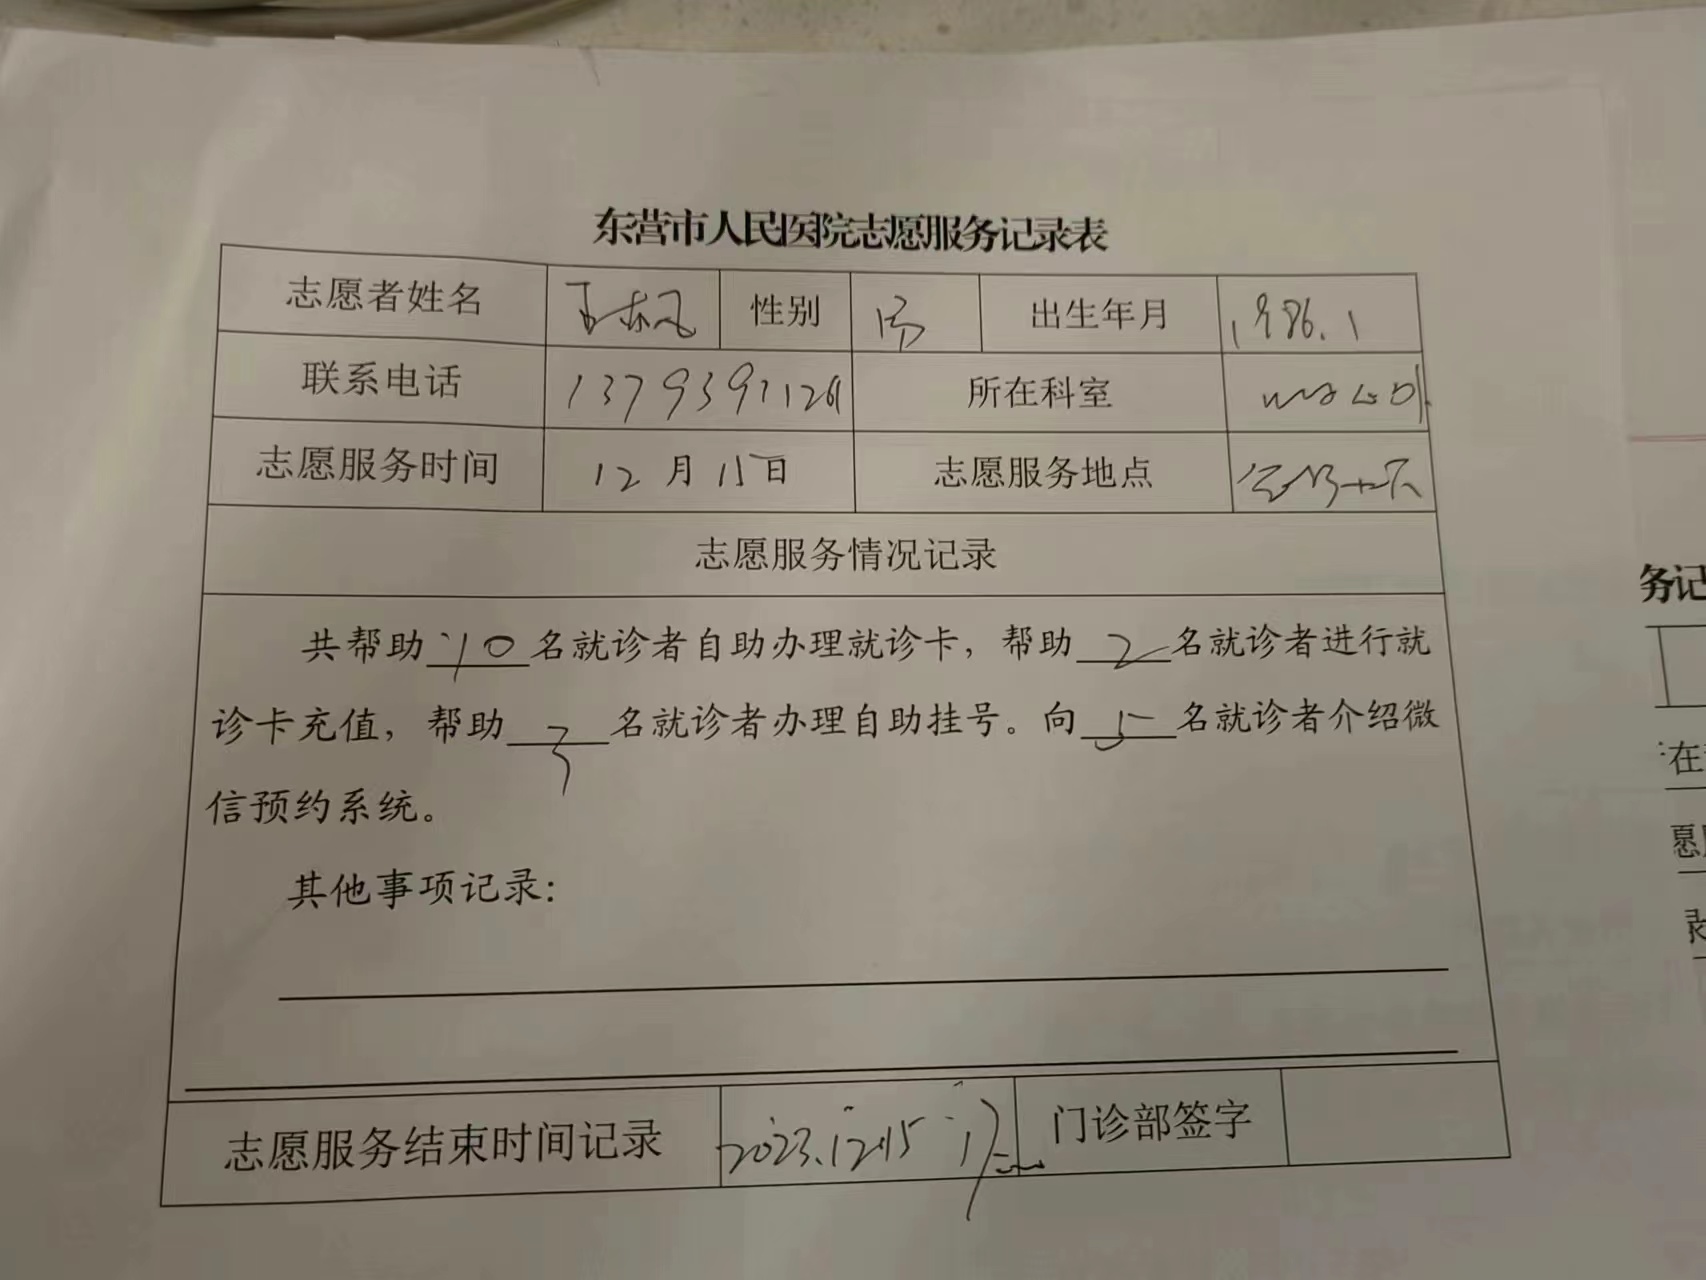 东营市人民医院志愿服务记录表
志愿者姓名 王东风 性别 男 出生年月 1986.1
联系电话 所在科室
志愿服务时间 12月15日 志愿服务地点
志愿服务情况记录
共帮助10名就诊者自助办理就诊卡，帮助2名就诊者进行就
诊卡充值，帮助3名就诊者办理自助挂号。向5名就诊者介绍微
信预约系统。
其他事项记录：
志愿服务结束时间记录 2023.12.15 门诊部签字
务记
在
愿
录